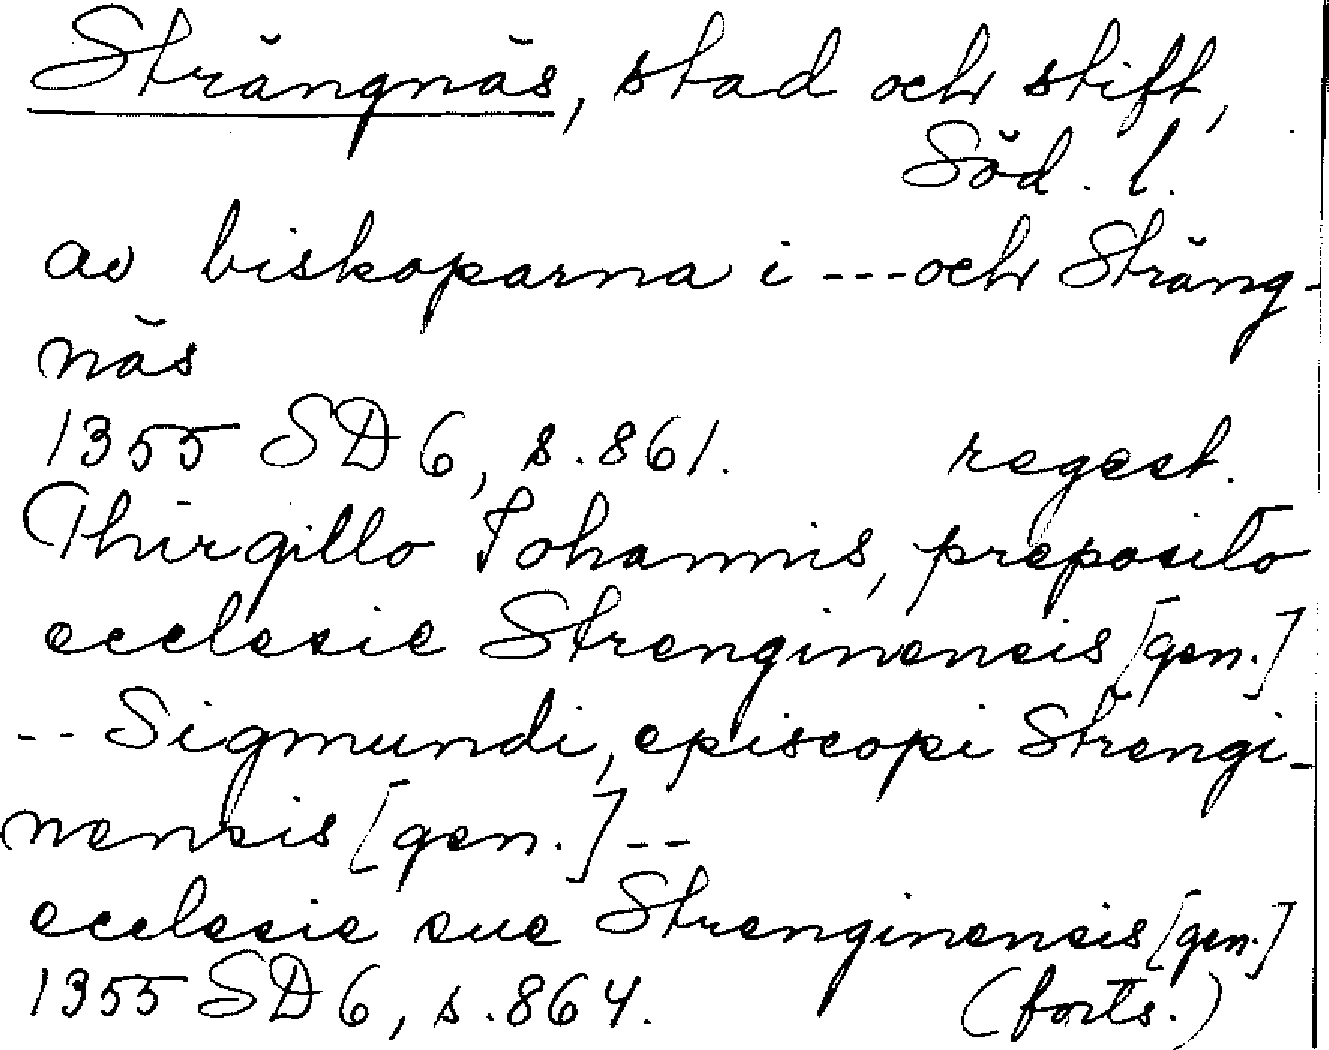 Strängnäs, stad och stift,
Söd. l.
av biskoparna i --- och Sträng-
näs
1355 SD 6, s. 861. regest.
Thirgillo Johannis, preposito
ecclesie Strenginensis [gen.]
-- Sigmundi, episcopi Strengi-
nensis [gen.] --
ecclesie sue Strenginensis [gen.]
1355 SD 6, s. 864. (forts.)